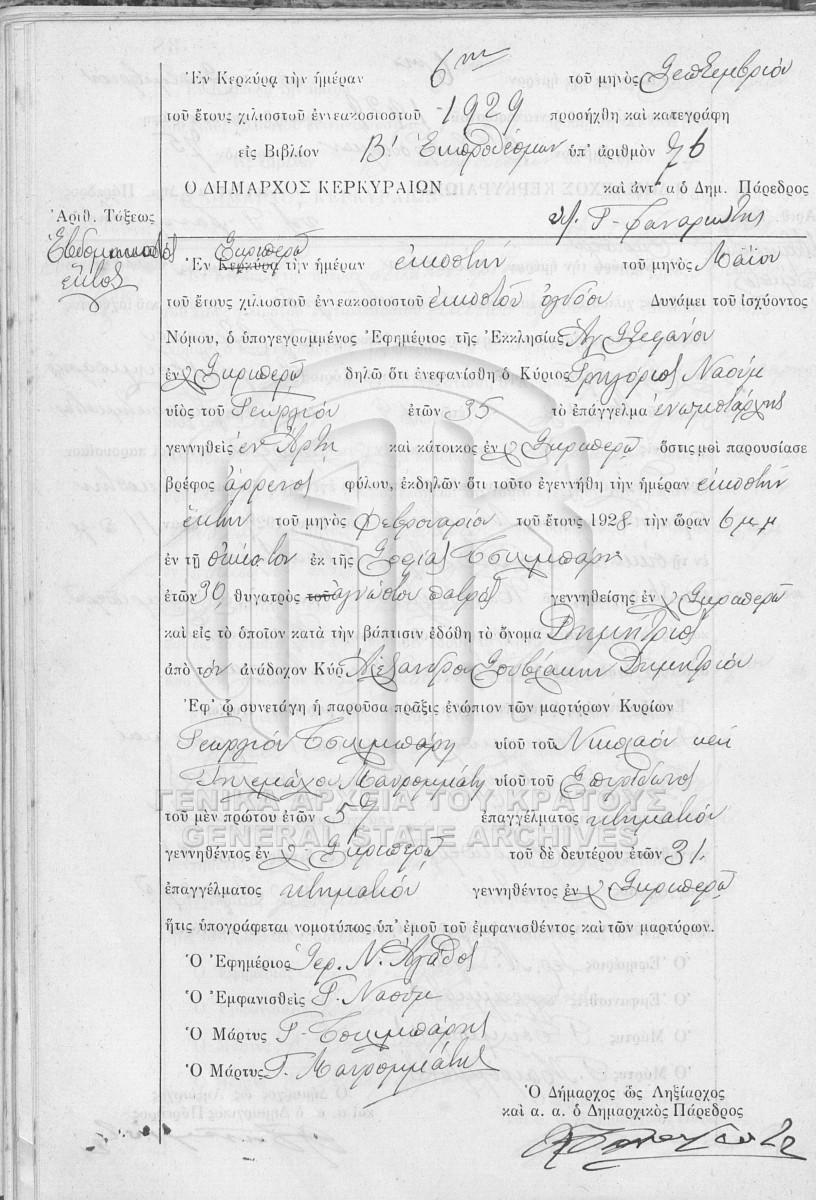 Ἐν Κερκύρᾳ τὴν ἡμέραν 6ην τοῦ μηνὸς Σεπτεμβρίου
τοῦ ἔτους χιλιοστοῦ ἐννεακοσιοστοῦ 1929 προσήχθη καὶ κατεγράφη
εἰς Βιβλίον Β' Ἐκπροθέσμων ὑπ' ἀριθμὸν 76
Ο ΔΗΜΑΡΧΟΣ ΚΕΡΚΥΡΑΙΩΝ καὶ ἀντ' α ὁ Δημ. Πάρεδρος
Ἀριθ. Τάξεως
Γ. Φαναριώτης
Ἑβδομηκοστὸς
ἕκτος
Σκριπερῷ
Ἐν Κερκύρᾳ τὴν ἡμέραν εἰκοστὴν τοῦ μηνὸς Μαΐου
τοῦ ἔτους χιλιοστοῦ ἐννεακοσιοστοῦ εἰκοστοῦ ὀγδόου Δυνάμει τοῦ ἰσχύοντος
Νόμου, ὁ ὑπογεγραμμένος Ἐφημέριος τῆς Ἐκκλησίας Ἁγ Στεφάνου
ἐν Σκριπερῷ δηλῶ ὅτι ἐνεφανίσθη ὁ Κύριος Γρηγόριος Ναοὺμ
υἱὸς τοῦ Γεωργίου ἐτῶν 35 τὸ ἐπάγγελμα ἐνωμοτάρχης
γεννηθεὶς ἐν Ἄρτῃ καὶ κάτοικος ἐν Σκριπερῷ ὅστις μοὶ παρουσίασε
βρέφος ἄρρενος φύλου, ἐκδηλῶν ὅτι τοῦτο ἐγεννήθη τὴν ἡμέραν εἰκοστὴν
ἕκτην τοῦ μηνὸς Φεβρουαρίου τοῦ ἔτους 1928 τὴν ὥραν 6 μ μ
ἐν τῇ οἰκίᾳ του ἐκ τῆς Σοφίας Τσιμπάρη
ἐτῶν 30 θυγατρὸς τοῦ ἀγνώστου πατρὸς γεννηθείσης ἐν Σκριπερῷ
καὶ εἰς τὸ ὁποῖον κατὰ τὴν βάπτισιν ἐδόθη τὸ ὄνομα Δημήτριος
ἀπὸ τὸν ἀνάδοχον Κύρ Ἀλέξανδρον Σουβλάκην Δημητρίου
Ἐφ' ᾧ συνετάγη ἡ παροῦσα πρᾶξις ἐνώπιον τῶν μαρτύρων Κυρίων
Γεωργίου Τσιμπάρη υἱοῦ τοῦ Νικολάου καὶ
Τηλεμάχου Μαυρομμάτη υἱοῦ τοῦ Σπυρίδωνος
ΓΕΝΙΚΑ ΑΡΧΕΙΑ ΤΟΥ ΚΡΑΤΟΥΣ
τοῦ μὲν πρώτου ἐτῶν 57 ἐπαγγέλματος κτηματίου
GENERAL STATE ARCHIVES
γεννηθέντος ἐν Σκριπερῷ τοῦ δὲ δευτέρου ἐτῶν 31
ἐπαγγέλματος κτηματίου γεννηθέντος ἐν Σκριπερῷ
ἥτις ὑπογράφεται νομοτύπως ὑπ' ἐμοῦ τοῦ ἐμφανισθέντος καὶ τῶν μαρτύρων.
Ὁ Ἐφημέριος Ἱερ. Ν. Ἀγαθὸς
Ὁ Ἐμφανισθεὶς Γ. Ναούμ
Ὁ Μάρτυς Γ. Τσιμπάρης
Ὁ Μάρτυς Τ. Μαυρομμάτης
Ὁ Δήμαρχος ὡς Ληξίαρχος
καὶ α. α. ὁ Δημαρχικὸς Πάρεδρος